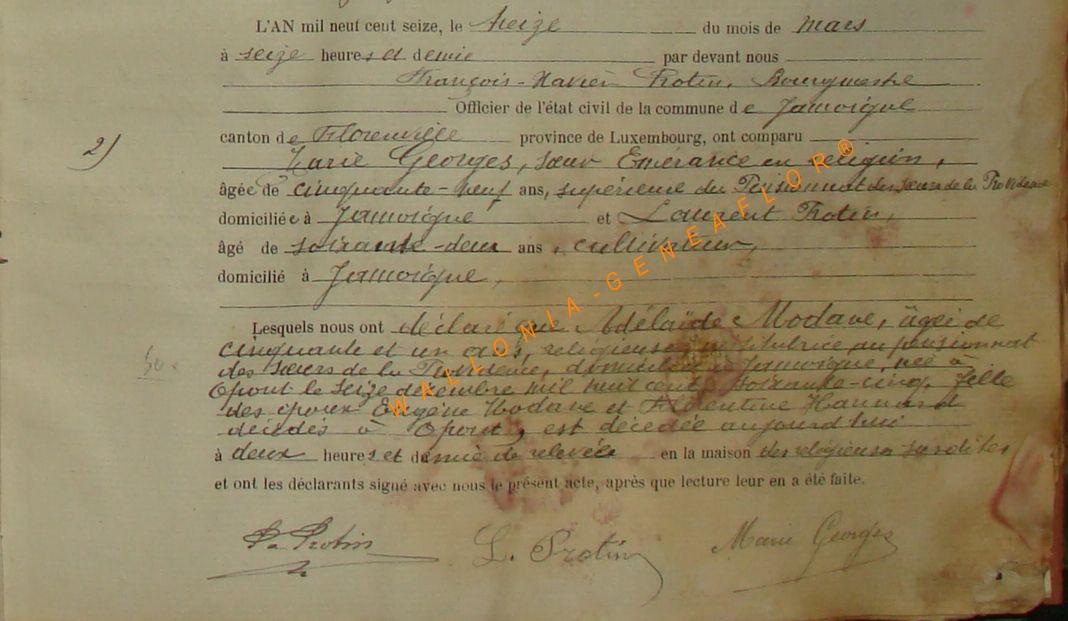 L'AN mil neuf cent seize, le treize du mois de mars
à seize heures et demie par devant nous
François-Xavier Protin, Bourgmestre
Officier de l'état civil de la commune de Jamoigne
canton de Florenville province de Luxembourg, ont comparu
2)
Marie Georges, sœur Emérance en religion,
âgée de cinquante-neuf ans, supérieure du Pensionnat des sœurs de la Providence
domiciliée à Jamoigne et Laurent Protin,
âgé de soixante-deux ans, cultivateur,
domicilié à Jamoigne,
Lesquels nous ont déclaré que Adélaïde Modave, âgée de
cinquante et un ans, religieuse institutrice au pensionnat
des sœurs de la Providence, domiciliée à Jamoigne, née à
Opont le seize décembre mil huit cent soixante-cinq, fille
des époux Eugène Modave et Florentine Hannard
décédés à Opont, est décédée aujourd'hui
à deux heures et demie de relevée en la maison des religieuses susdites
et ont les déclarants signé avec nous le présent acte, après que lecture leur en a été faite.
Protin L. Protin Marie Georges
WALLONIA-GENEAFLOR®